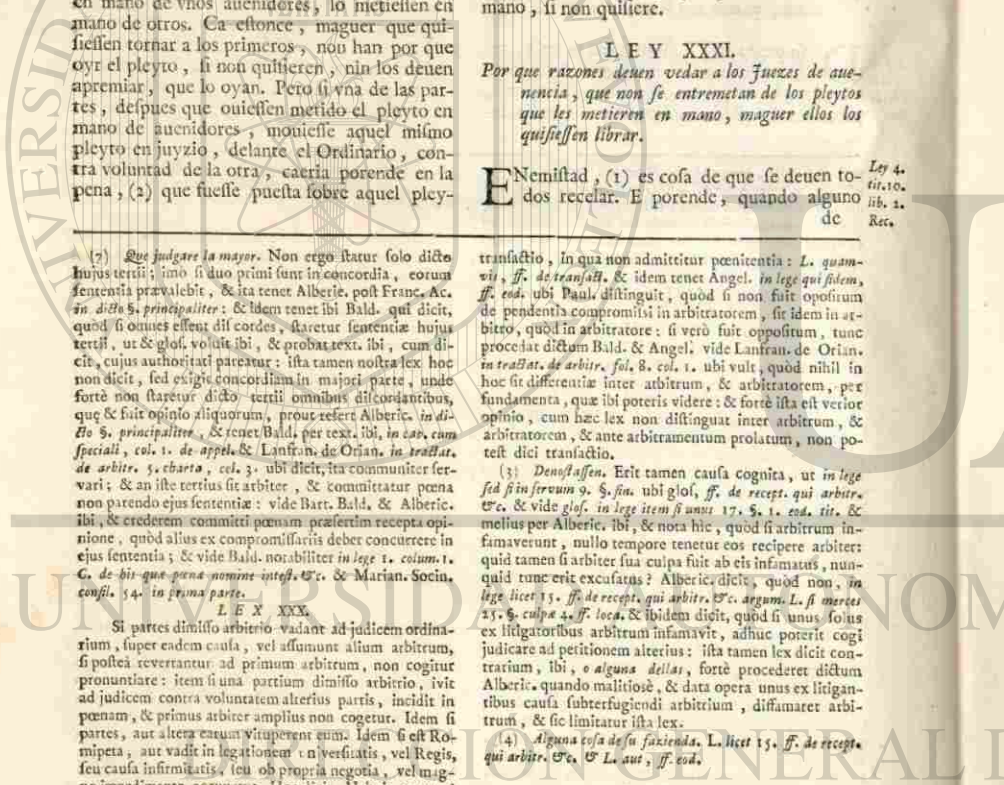 en mano de vnos auenidores, lo metieſſen en
mano de otros. Ca eſtonce, maguer que qui-
ſieſſen tornar a los primeros, non han por que
oyr el pleyto, ſi non quiſieren, nin los deuen
apremiar, que lo oyan. Pero ſi vna de las par-
tes, deſpues que ouieſſen metido el pleyto en
mano de auenidores, mouieſſe aquel miſmo
pleyto en juyzio, delante el Ordinario, con-
tra voluntad de la otra, caeria porende en la
pena, (2) que fueſſe pueſta ſobre aquel pley-
mano, ſi non quiſiere.
LEY XXXI.
Por que razones deuen vedar a los Juezes de aue-
nencia, que non ſe entremetan de los pleytos
que les metieren en mano, maguer ellos los
quiſieſſen librar.
ENemiſtad, (1) es coſa de que ſe deuen to-
dos recelar. E porende, quando alguno
de
Ley 4.
tit.10.
lib. 2.
Rec.
(7) Que judgare la mayor. Non ergo ſtatur ſolo dicto
hujus tertii; imo ſi duo primi ſunt in concordia, eorum
ſententia prævalebit, & ita tenet Alberic. poſt Franc. Ac.
in dicto §. principaliter: & idem tenet ibi Bald. qui dicit,
quòd ſi omnes eſſent diſcordes, ſtaretur ſententiæ hujus
tertii, ut & gloſ. voluit ibi, & probat text. ibi, cum di-
cit, cujus authoritati pareatur: iſta tamen noſtra lex hoc
non dicit, ſed exigit concordiam in majori parte, unde
fortè non ſtaretur dicto tertii omnibus diſcordantibus,
quę & fuit opinio aliquorum, prout refert Alberic. in di-
cto §. principaliter, & tenet Bald. per text. ibi, in cap. cum
ſpeciali, col. 1. de appel. & Lanfran. de Orian. in tractat.
de arbitr. 5. charta, col. 3. ubi dicit, ita communiter ſer-
vari; & an iſte tertius ſit arbiter, & committatur pœna
non parendo ejus ſententiæ: vide Bart. Bald. & Alberic.
ibi, & crederem committi pœnam præſertim recepta opi-
nione, quòd alius ex compromiſſariis debet concurrere in
ejus ſententia; & vide Bald. notabiliter in lege 1. colum. 1.
C. de his quæ pœnæ nomine inteſt. &c. & Marian. Socin.
conſil. 54. in prima parte.
LEX XXX.
Si partes dimiſſo arbitrio vadant ad judicem ordina-
rium, ſuper eadem cauſa, vel aſſumunt alium arbitrum,
ſi poſteà revertantur ad primum arbitrum, non cogitur
pronuntiare: item ſi una partium dimiſſo arbitrio, ivit
ad judicem contra voluntatem alterius partis, incidit in
pœnam, & primus arbiter amplius non cogetur. Idem ſi
partes, aut altera earum vituperent eum. Idem ſi eſt Ro-
mipeta, aut vadit in legationem Univerſitatis, vel Regis,
ſeu cauſa infirmitatis, ſeu ob propria negotia, vel mag-
tranſactio, in qua non admittitur pœnitentia: L. quam-
vis, ff. de tranſact. & idem tenet Angel. in lege qui fidem,
ff. eod. ubi Paul. diſtinguit, quòd ſi non fuit oppoſitum
de pendentia compromiſsi in arbitratorem, ſit idem in ar-
bitro, quòd in arbitratore: ſi verò fuit oppoſitum, tunc
procedat dictum Bald. & Angel. vide Lanfran. de Orian.
in tractat. de arbitr. fol. 8. col. 1. ubi vult, quòd nihil in
hoc ſit differentiæ inter arbitrum, & arbitratorem, per
fundamenta, quæ ibi poteris videre: & fortè iſta eſt verior
opinio, cum hæc lex non diſtinguat inter arbitrum, &
arbitratorem, & ante arbitramentum prolatum, non po-
teſt dici tranſactio.
(3) Denoſtaſſen. Erit tamen cauſa cognita, ut in lege
ſed ſi in ſervum 9. §. fin. ubi gloſ, ff. de recept. qui arbitr.
&c. & vide gloſ. in lege item ſi unus 17. §. 1. eod. tit. &
melius per Alberic. ibi, & nota hìc, quòd ſi arbitrum in-
famaverunt, nullo tempore tenetur eos recipere arbiter:
quid tamen ſi arbiter ſua culpa fuit ab eis infamatus, nun-
quid tunc erit excuſatus? Alberic. dicit, quòd non, in
lege licet 15. ff. de recept. qui arbitr. &c. argum. L. ſi merces
25. §. culpæ 4. ff. loca. & ibidem dicit, quòd ſi unus ſolus
ex litigatoribus arbitrum infamavit, adhuc poterit cogi
judicare ad petitionem alterius: iſta tamen lex dicit con-
trarium, ibi, o alguna dellas, fortè procederet dictum
Alberic. quando malitiosè, & data opera unus ex litigan-
tibus cauſa ſubterfugiendi arbitrium, diffamaret arbi-
trum, & ſic limitatur iſta lex.
(4) Alguna coſa de ſu fazienda. L. licet 15. ff. de recept.
qui arbitr. &c. & L. aut, ff. eod.